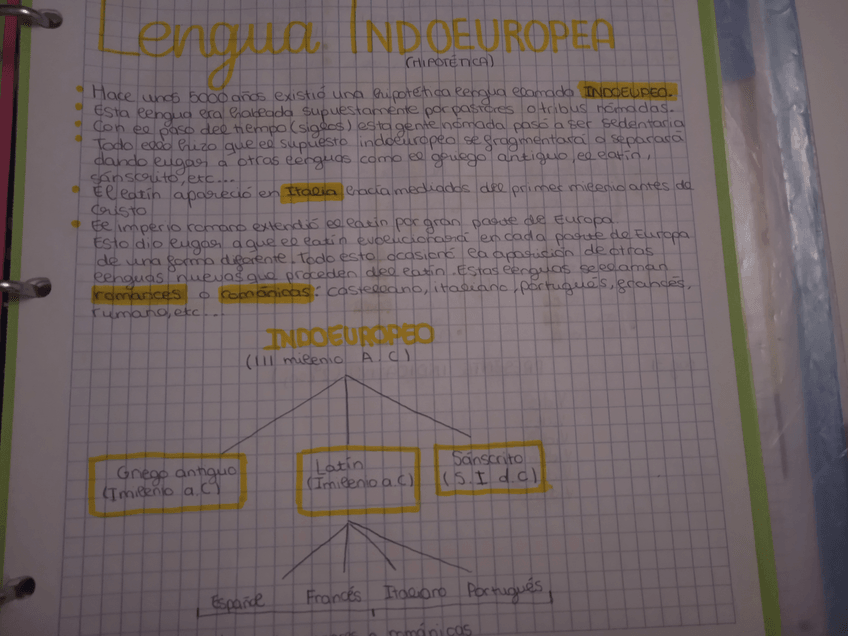 Lengua INDOEUROPEA
(HIPOTÉTICA)
Hace unos 5000 años existió una hipotética lengua llamada INDOEUPEO.
Esta lengua era hablada supuestamente por pastores o tribus nómadas.
Con el paso del tiempo (siglos) esta gente nómada pasó a ser sedentaria
Todo esto hizo que el supuesto indoeuropeo se fragmentará o separará
dando lugar a otras lenguas como el griego antiguo, el latín,
sánscrito, etc...
El latín apareció en Italia hacia mediados del primer milenio antes de
Cristo
El imperio romano extendió el latín por gran parte de Europa
Esto dio lugar a que el latín evolucionará en cada parte de Europa
de una forma diferente. Todo esto ocasionó la aparición de otras
lenguas nuevas que proceden del latín. Estas lenguas se llaman
romances o románicas: castellano, italiano, portugués, francés,
rumano, etc...
INDOEUROPEO
(III milenio A.C)
Griego antiguo
(I milenio a.C)
Latín
(I milenio a.C)
Sánscrito
(S.I d.C)
Español Francés Italiano Portugués
románicas